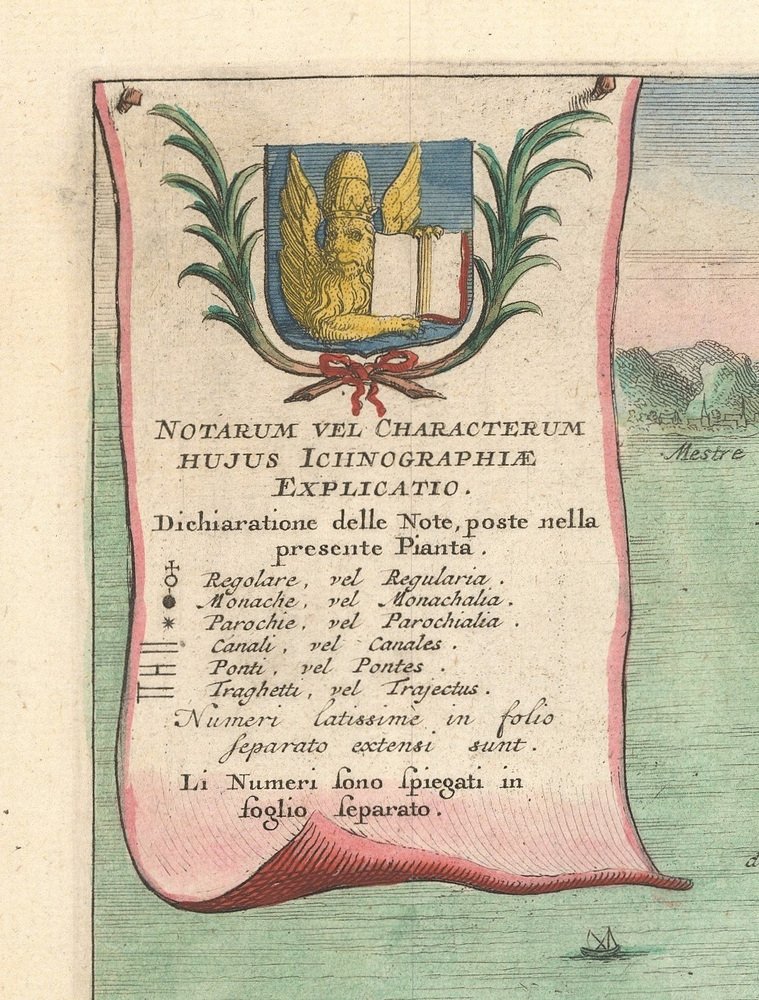 NOTARUM VEL CHARACTERUM
HUJUS ICHNOGRAPHIÆ
EXPLICATIO.
Dichiaratione delle Note, poste nella
presente Pianta.
Regolare, vel Regularia.
Monache, vel Monachalia.
Parochie, vel Parochialia.
Canali, vel Canales.
Ponti, vel Pontes.
Traghetti, vel Trajectus.
Numeri latissime in folio
ſeparato extensi sunt.
Li Numeri ſono ſpiegati in
foglio ſeparato.
Mestre
d